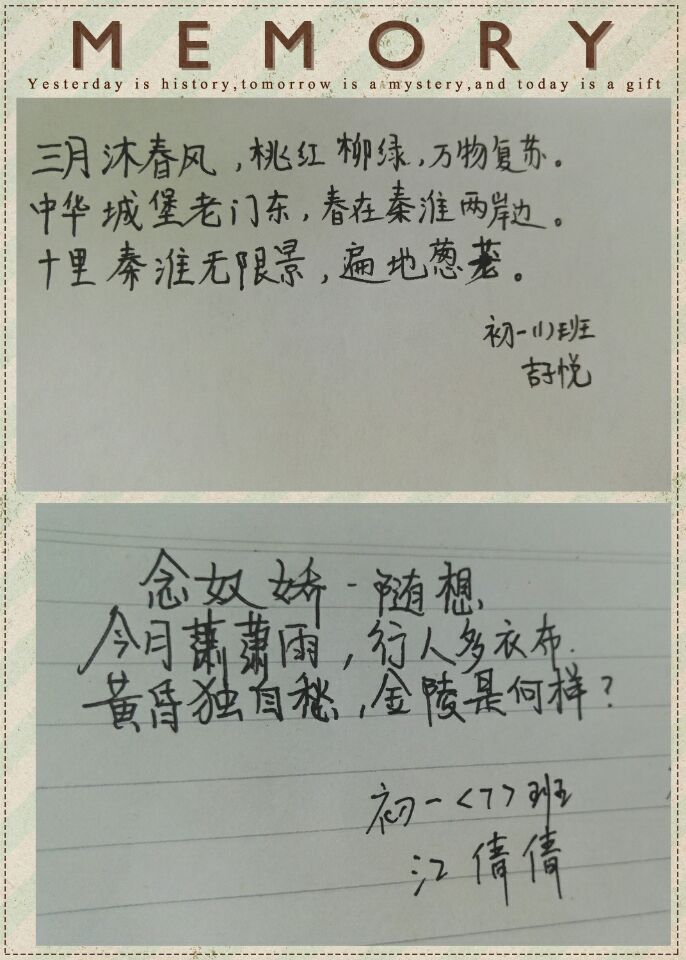 MEMORY
Yesterday is history,tomorrow is a mystery,and today is a gift
三月沐春风，桃红柳绿，万物复苏。
中华城堡老门东，春在秦淮两岸边。
十里秦淮无限景，遍地葱茏。
初一(1)班
悦
念奴娇-随想
今月萧萧雨，行人多衣布.
黄昏独自愁，金陵是何样？
初一<7>班
江倩倩